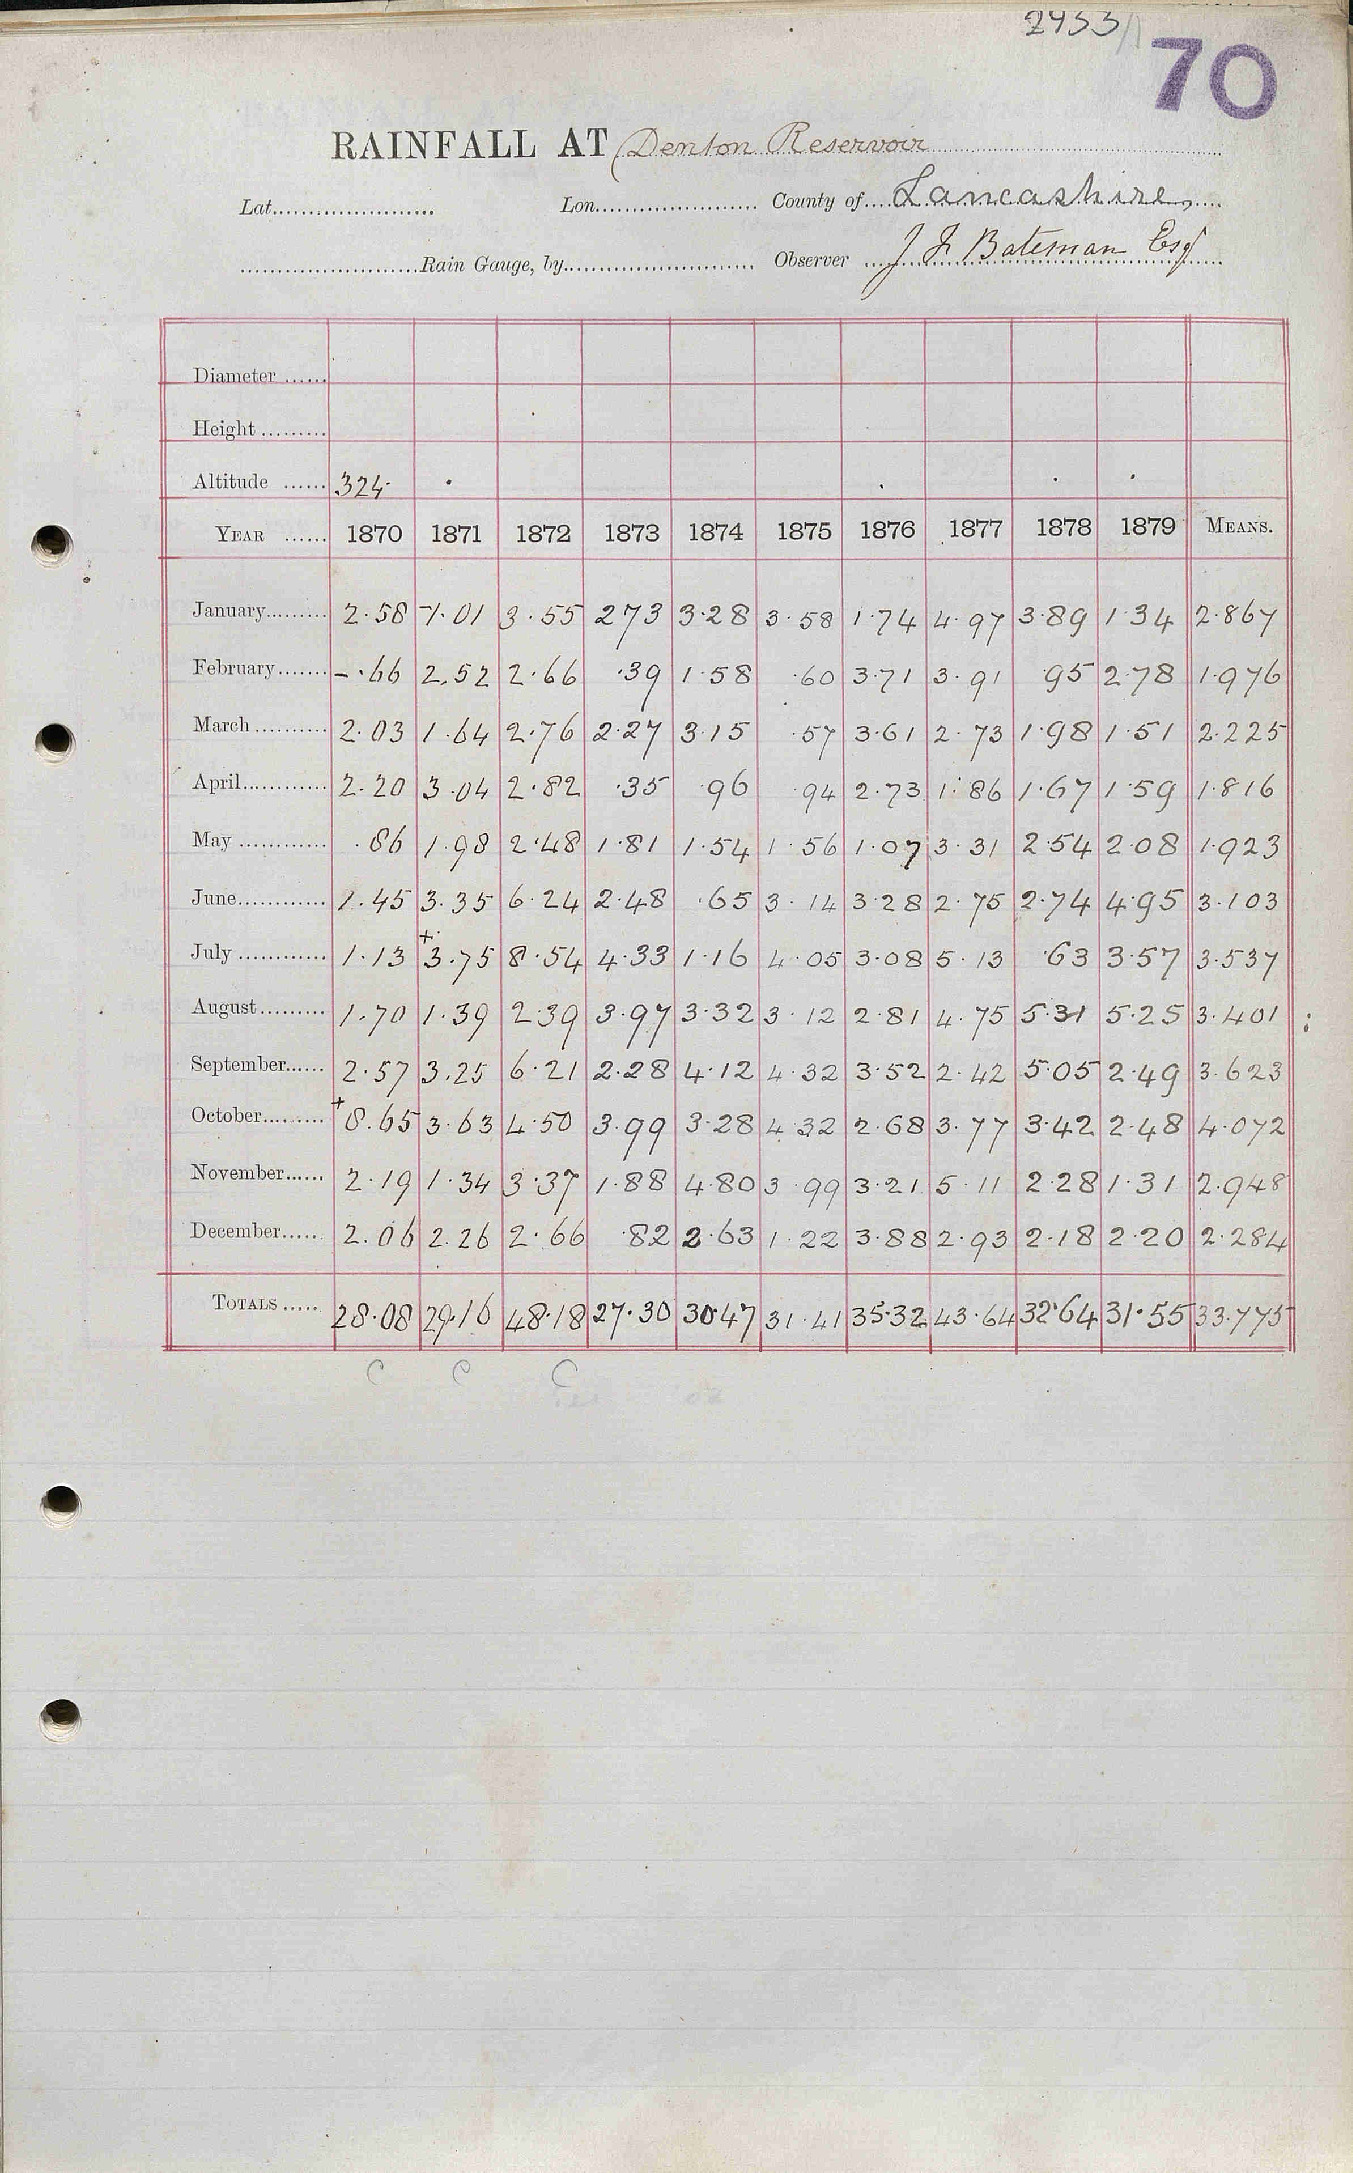 2433/1
70
RAINFALL AT Denton Reservoir
Lat. Lon. County of Lancashire,
Rain Gauge, by Observer J F Bateman Esq
Diameter
Height
Altitude 324
YEAR 1870 1871 1872 1873 1874 1875 1876 1877 1878 1879 MEANS.
January 2.58 1.01 3.55 2.73 3.28 3.58 1.74 4.97 3.89 1.34 2.867
February -.66 2.52 2.66 .39 1.58 .60 3.71 3.91 .95 2.78 1.976
March 2.03 1.64 2.76 2.27 3.15 .57 3.61 2.73 1.98 1.51 2.225
April 2.20 3.04 2.82 .35 .96 .94 2.73 1.86 1.67 1.59 1.816
May .86 1.98 2.48 1.81 1.54 1.56 1.07 3.31 2.54 2.08 1.923
June 1.45 3.35 6.24 2.48 .65 3.14 3.28 2.75 2.74 4.95 3.103
July 1.13 +3.75 8.54 4.33 1.16 4.05 3.08 5.13 .63 3.57 3.537
August 1.70 1.39 2.39 3.97 3.32 3.12 2.81 4.75 5.31 5.25 3.401
September 2.57 3.25 6.21 2.28 4.12 4.32 3.52 2.42 5.05 2.49 3.623
October +8.65 3.63 4.50 3.99 3.28 4.32 2.68 3.77 3.42 2.48 4.072
November 2.19 1.34 3.37 1.88 4.80 3.99 3.21 5.11 2.28 1.31 2.948
December 2.06 2.26 2.66 .82 2.63 1.22 3.88 2.93 2.18 2.20 2.284
TOTALS 28.08 29.16 48.18 27.30 30.47 31.41 35.32 43.64 32.64 31.55 33.775
C C C